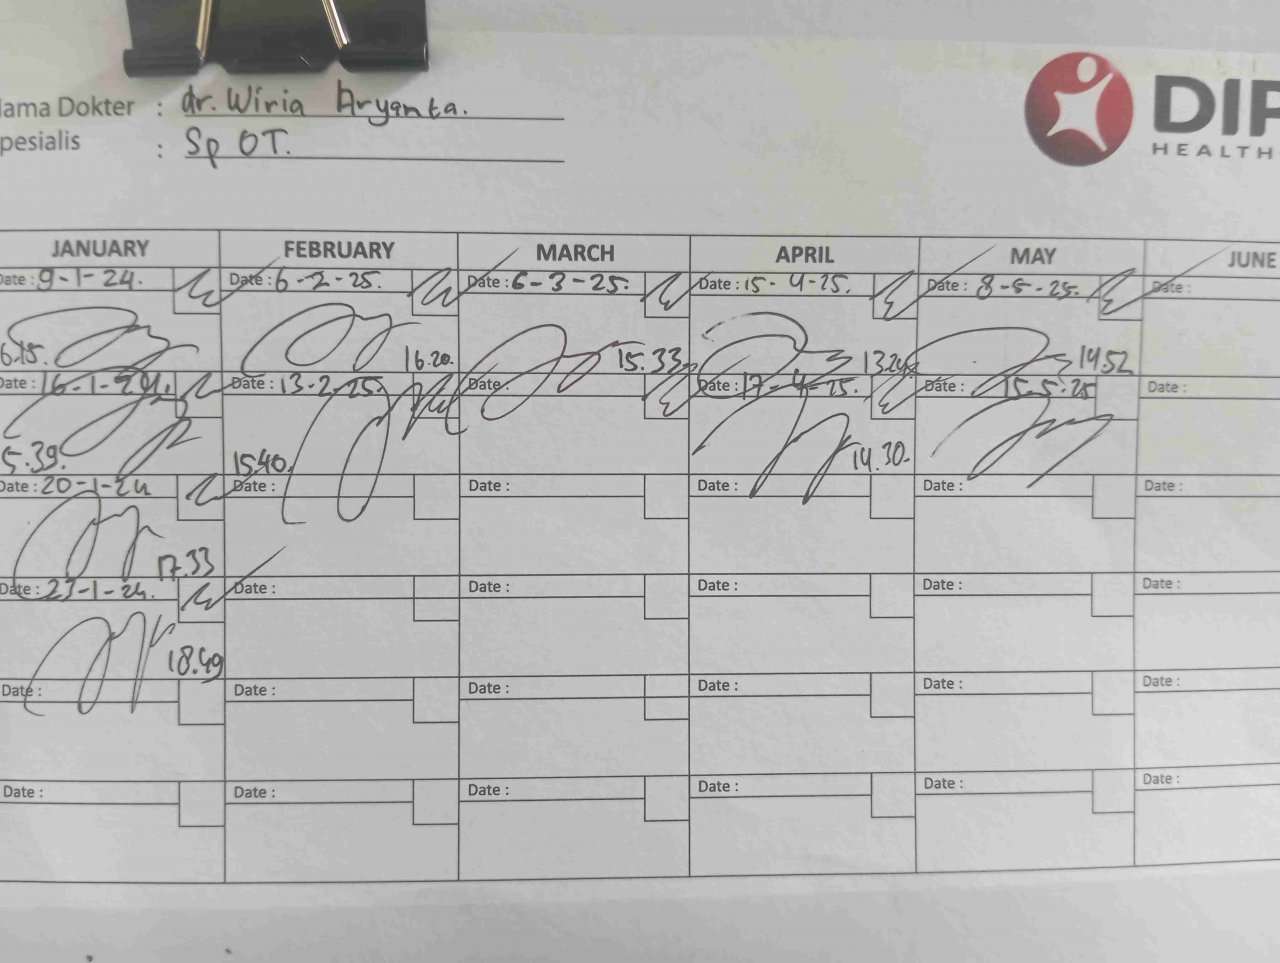 ama Dokter : dr. Wiria Aryanta.
pesialis : Sp OT.
DIP
HEALTH
JANUARY FEBRUARY MARCH APRIL MAY JUNE
Date : 9-1-24. Date : 6-2-25. Date : 6-3-25. Date : 15-4-25. Date : 8-5-25. Date :
6.15. 16.20. 15.33 13.24 14.52
Date : 16-1-24. Date : 13-2-25. Date : Date : 17-4-25. Date : 15-5-25 Date :
5.39. 15.40. 14.30.
Date : 20-1-24 Date : Date : Date : Date : Date :
17.33
Date : 23-1-24. Date : Date : Date : Date : Date :
18.49
Date : Date : Date : Date : Date : Date :
Date : Date : Date : Date : Date : Date :